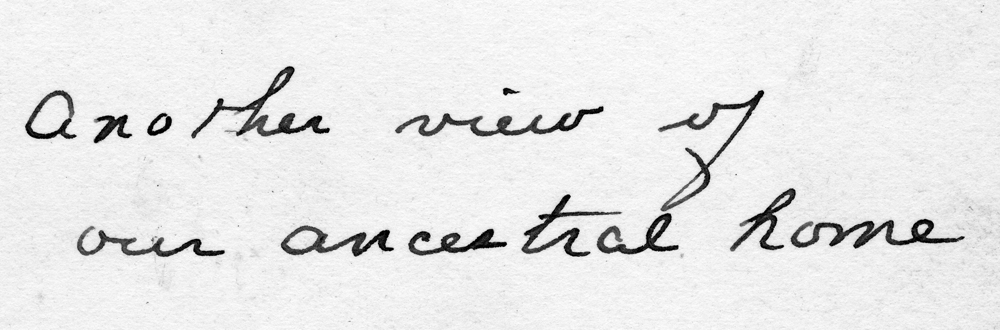 Another view of
our ancestral home